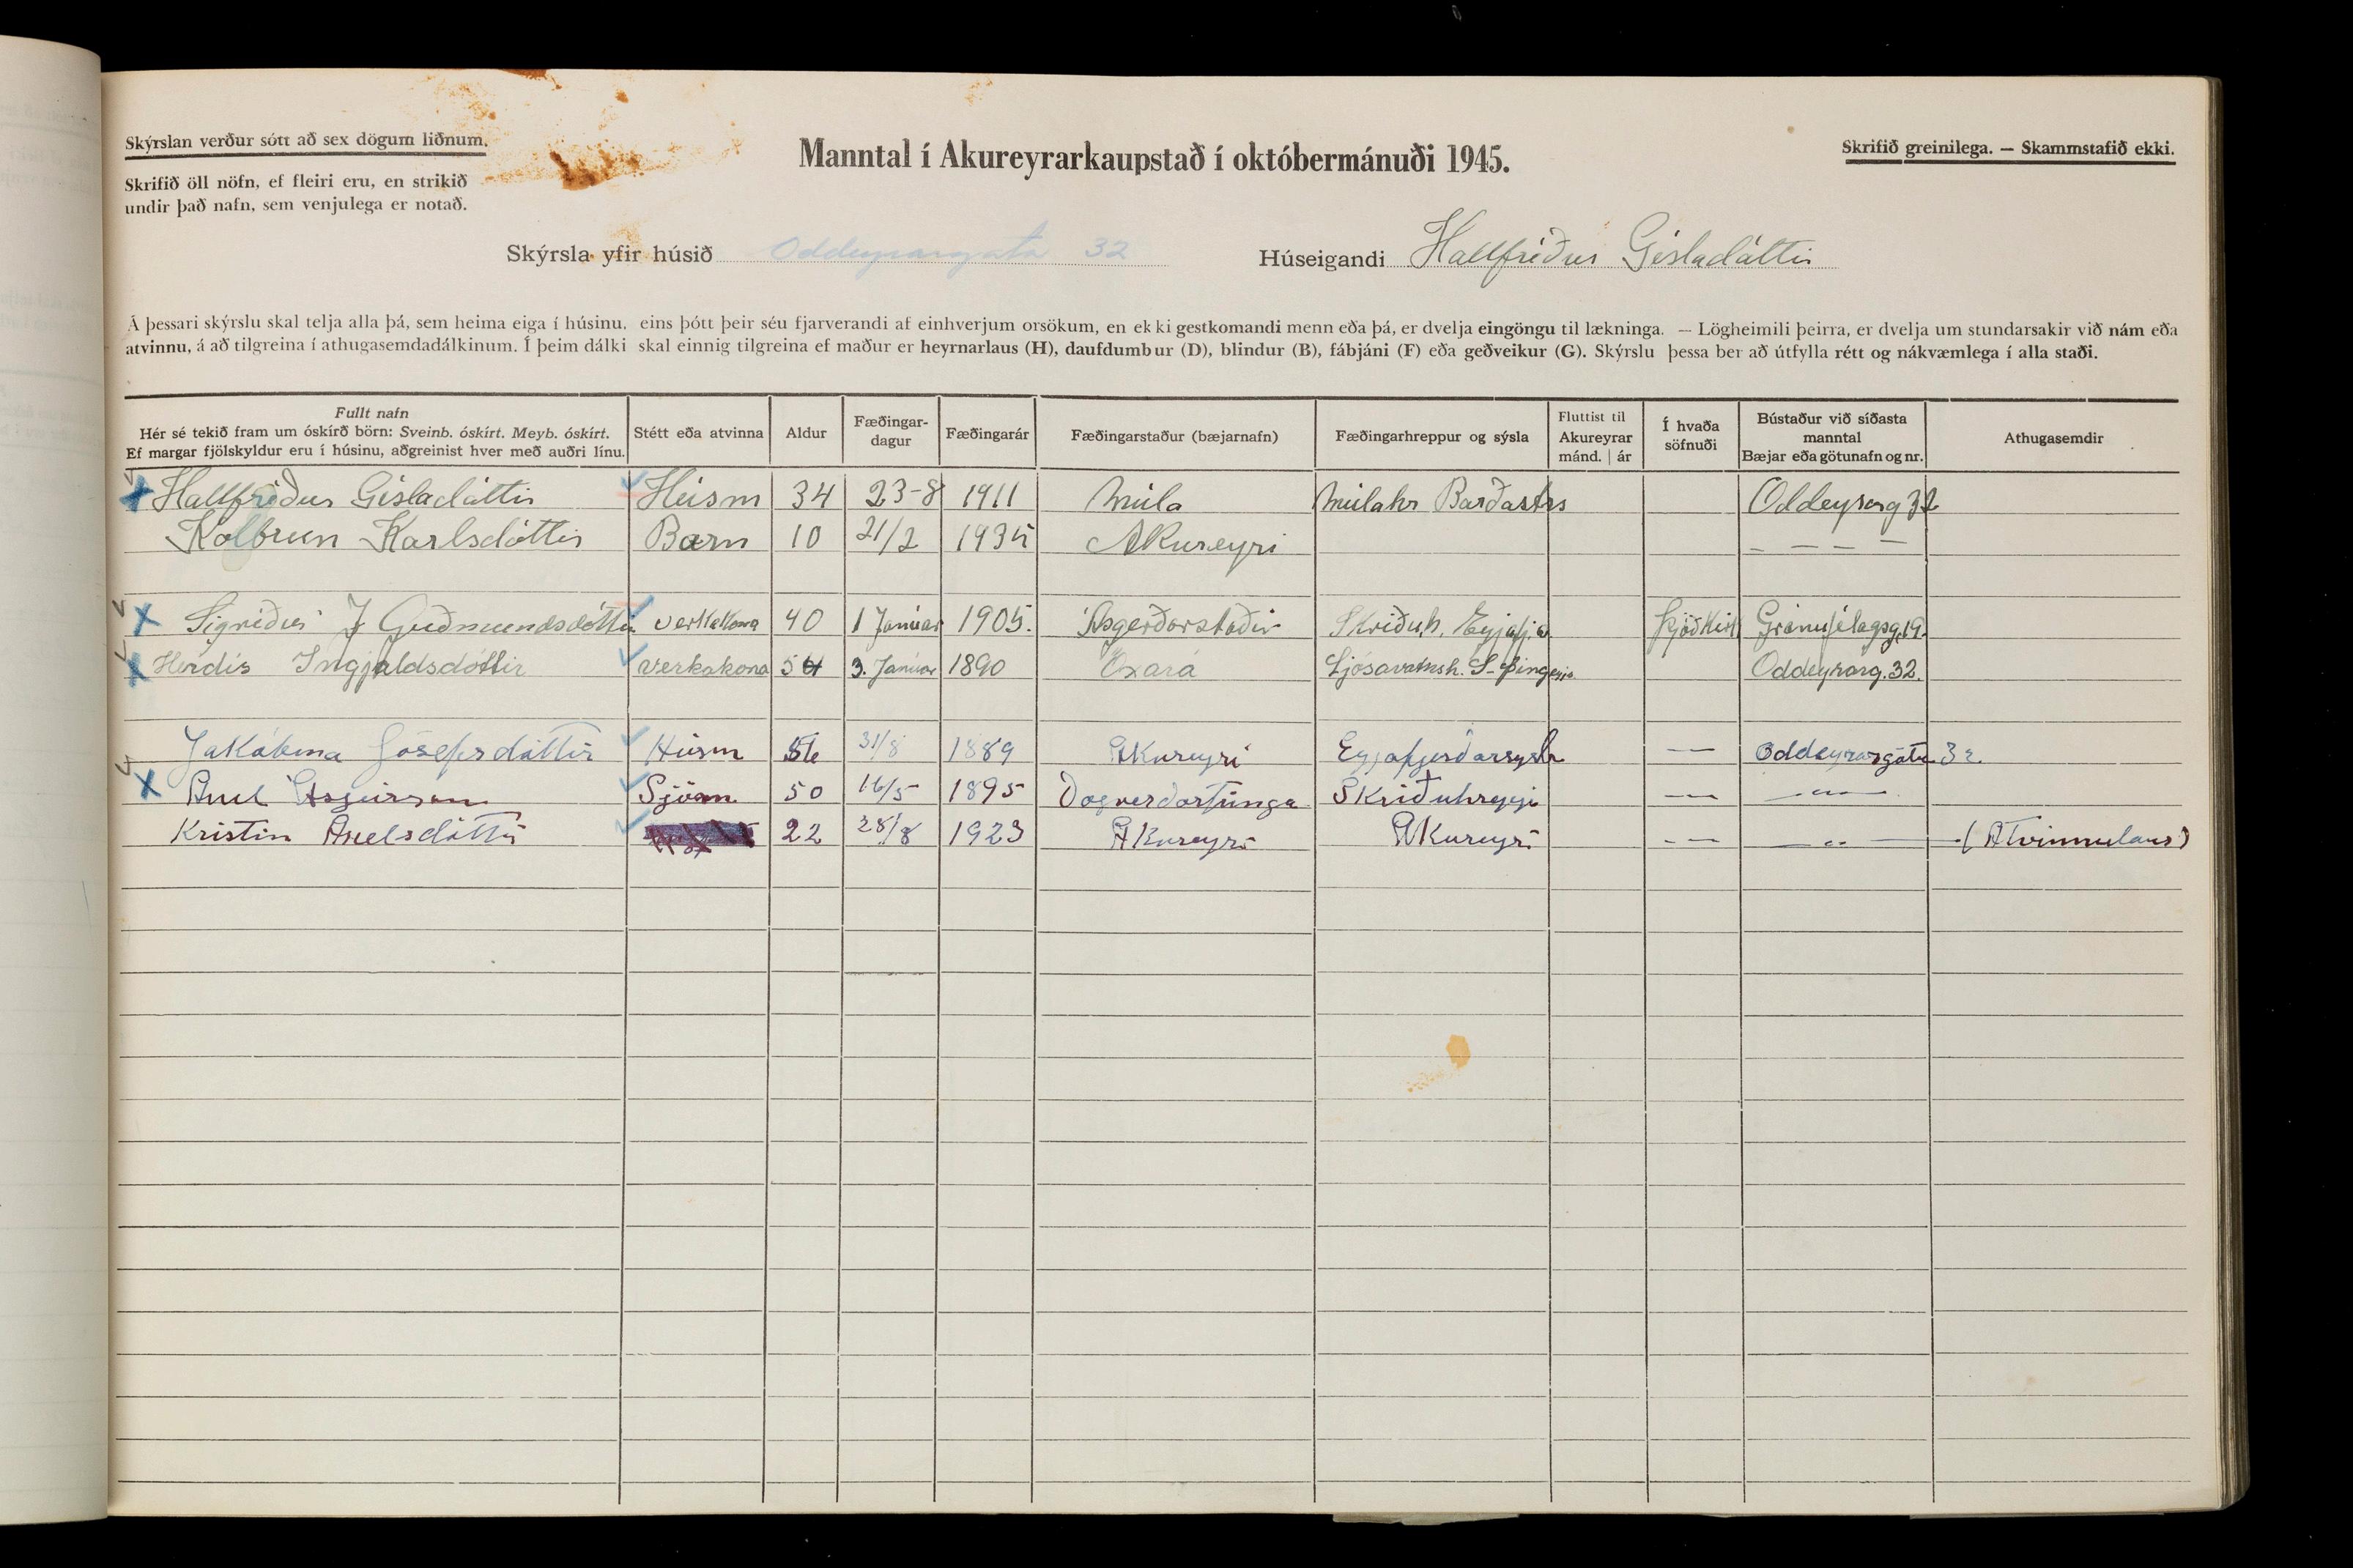 Skýrslan verður sótt að sex dögum liðnum.
Skrifið öll nöfn, ef fleiri eru, en strikið
undir það nafn, sem venjulega er notað.
Manntal í Akureyrarkaupstað í októbermánuði 1945.
Skrifið greinilega. — Skammstafið ekki.
Skýrsla yfir húsið Oddeyrargata 32 Húseigandi Hallfríður Gísladóttir
Á þessari skýrslu skal telja alla þá, sem heima eiga í húsinu, eins þótt þeir séu fjarverandi af einhverjum orsökum, en ekki gestkomandi menn eða þá, er dvelja eingöngu til lækninga. — Lögheimili þeirra, er dvelja um stundarsakir við nám eða
atvinnu, á að tilgreina í athugasemdadálkinum. Í þeim dálki skal einnig tilgreina ef maður er heyrnarlaus (H), daufdumbur (D), blindur (B), fábjáni (F) eða geðveikur (G). Skýrslu þessa ber að útfylla rétt og nákvæmlega í alla staði.
Fullt nafn
Hér sé tekið fram um óskírð börn: Sveinb. óskírt. Meyb. óskírt.
Ef margar fjölskyldur eru í húsinu, aðgreinist hver með auðri línu.
Stétt eða atvinna
Aldur
Fæðingar-
dagur
Fæðingarár
Fæðingarstaður (bæjarnafn)
Fæðingarhreppur og sýsla
Fluttist til
Akureyrar
mánd. | ár
Í hvaða
söfnuði
Bústaður við síðasta
manntal
Bæjar eða götunafn og nr.
Athugasemdir
Hallfríður Gísladóttir Húsm 34 23-8 1911 Múla Múlahr Barðastrs Oddeyrarg 32
Kolbrún Karlsdóttir Barn 10 21/2 1935 Akureyri — — — —
Sigríður J Guðmundsdóttir verkakona 40 1 Janúar 1905. Ásgerðarstaðir Skriðuh. Eyjafj.s. Þjóðkirk Gránufélagsg.19.
Herdís Ingjaldsdóttir verkakona 54 3. Janúar 1890 Öxará Ljósavatnsh. S-Þingeyjs. Oddeyrarg.32.
Jakobína Jósefsdóttir Húsm 56 31/8 1889 Akureyri Eyjafjarðarsysla — Oddeyrargötu 32.
Axel Ásgeirsson Sjóm 50 16/5 1895 Dagverðartunga Skriðuhreppi — —"—
Kristín Axelsdóttir 22 28/8 1923 Akureyri Akureyri — — —"— (Atvinnulaus)